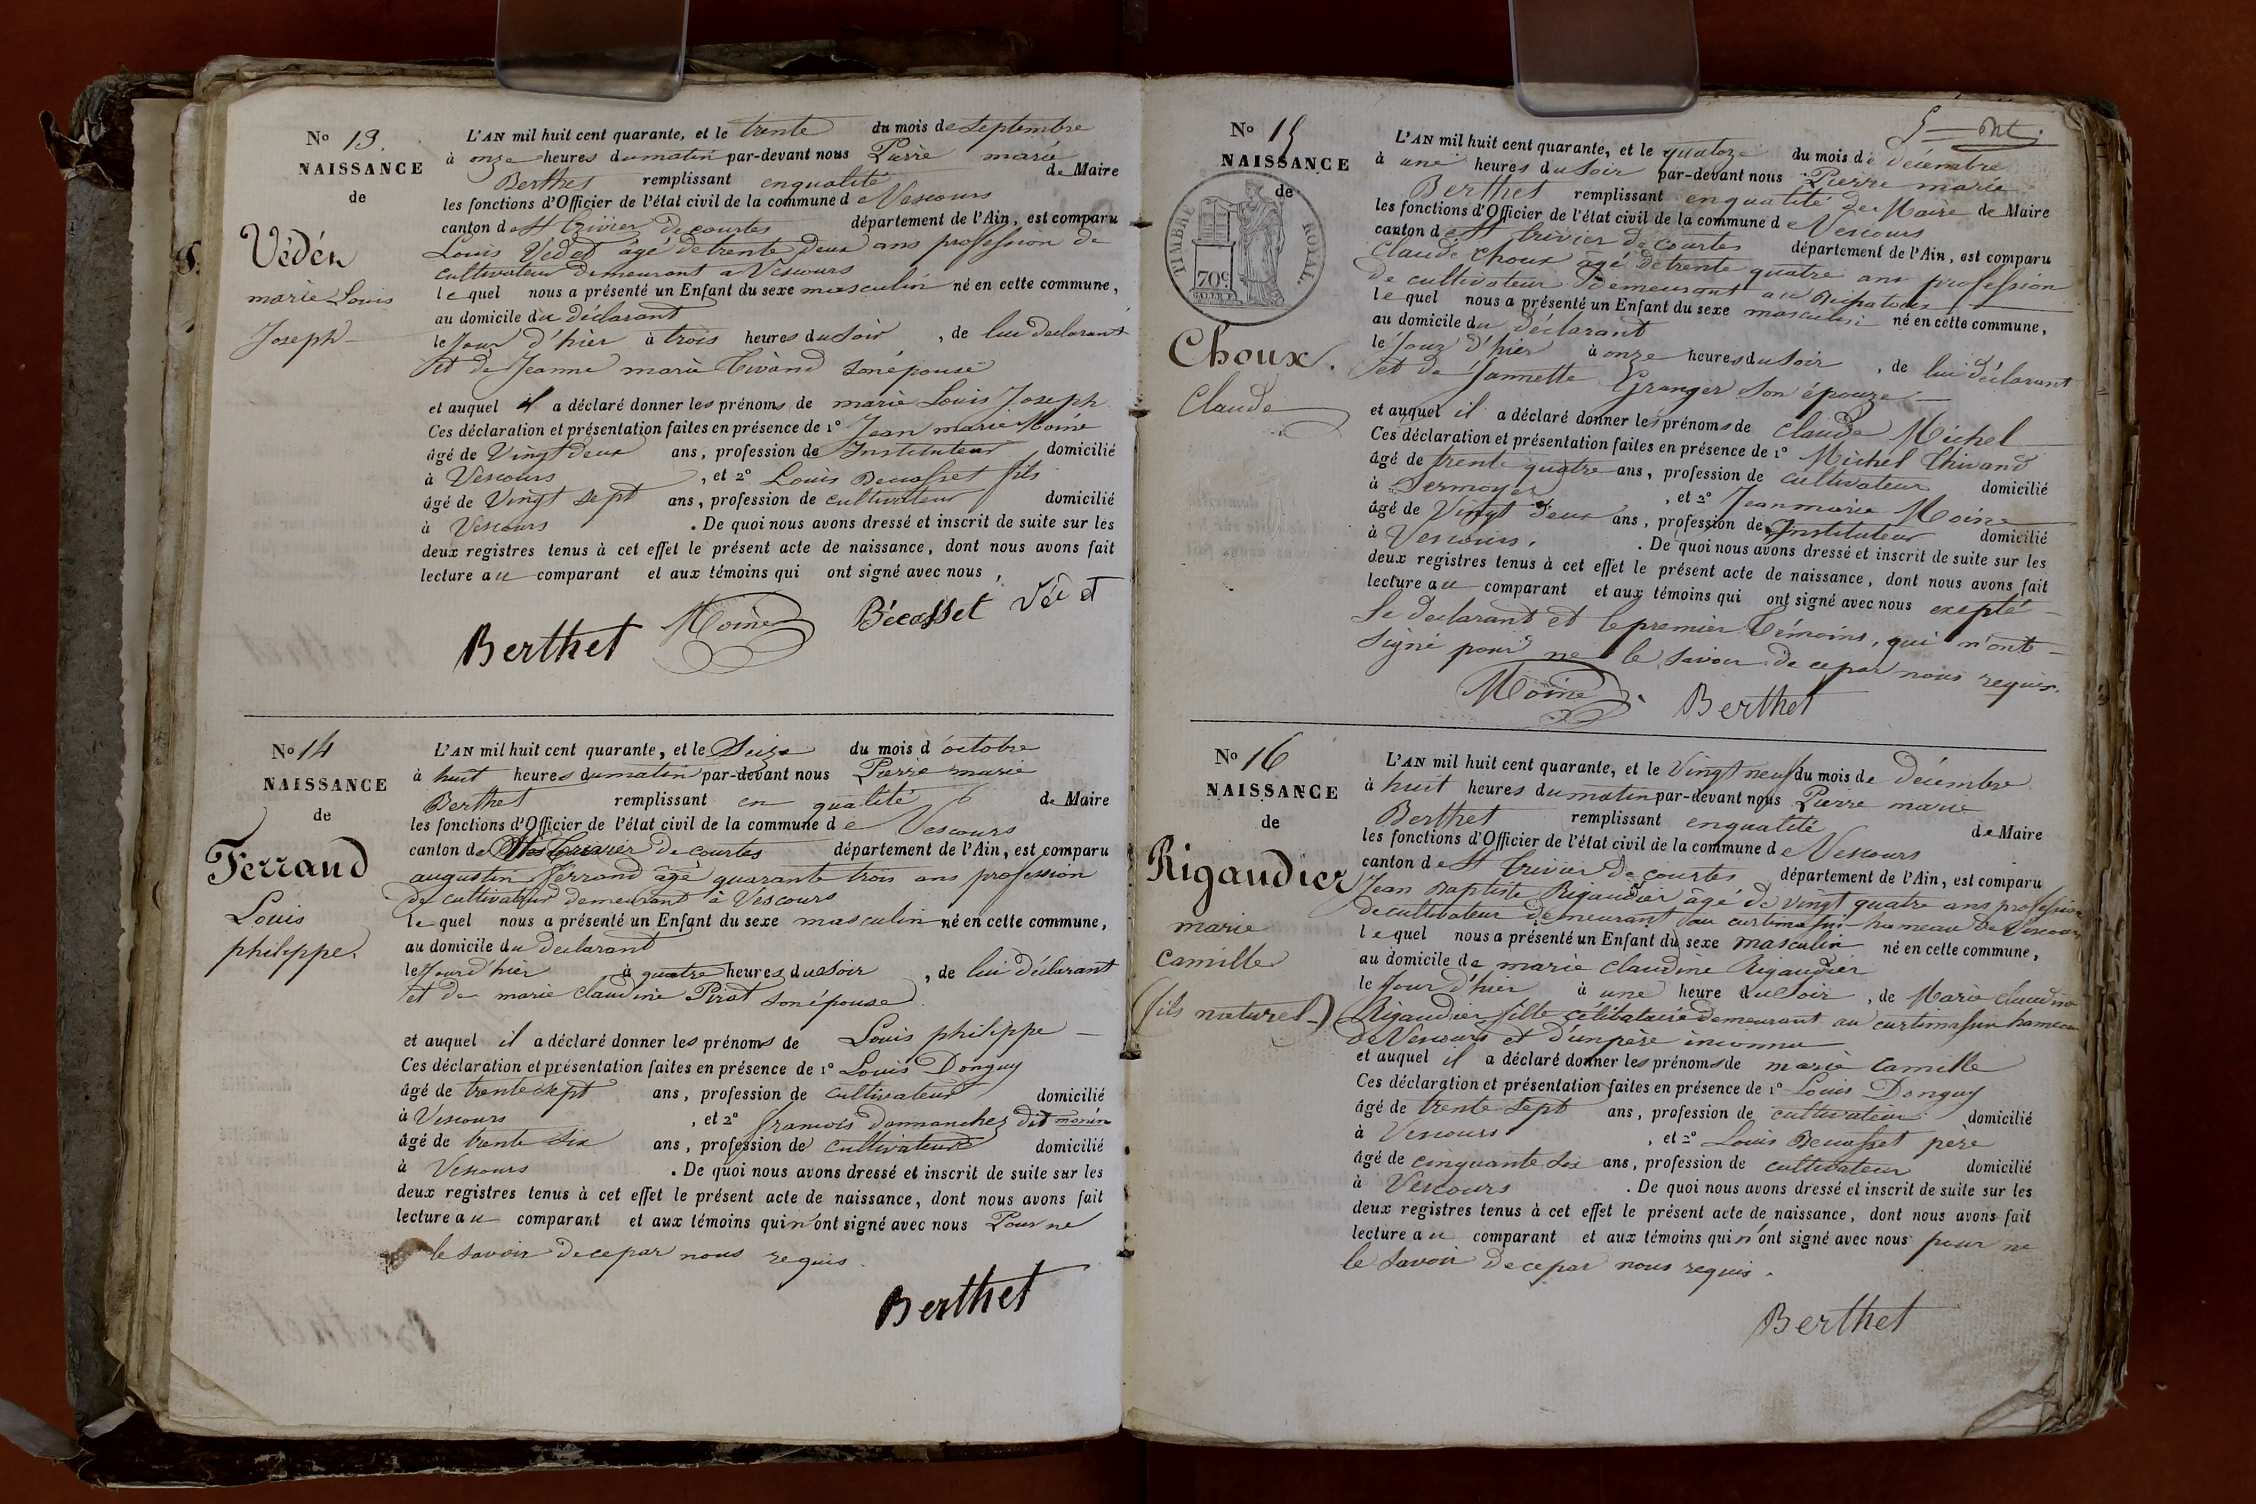 No 13.
NAISSANCE
de
Védet
marie Louis
Joseph
L'AN mil huit cent quarante, et le trente du mois de Septembre
à onze heures du matin par-devant nous Pierre marie
Berthet remplissant en qualité de Maire
les fonctions d'Officier de l'état civil de la commune de Vescours
canton de St Trivier de courtes département de l'Ain, est comparu
Louis Vedet âgé de trente deux ans profession de
cultivateur demeurant a Vescours
lequel nous a présenté un Enfant du sexe masculin né en cette commune,
au domicile du déclarant
le Jour d'hier à trois heures du Soir, de lui déclarant
et de Jeanne marie Tivand son épouse
et auquel il a déclaré donner les prénoms de marie Louis Joseph
Ces déclaration et présentation faites en présence de 1° Jean marie Moine
âgé de Vingt deux ans, profession de Instituteur domicilié
à Vescours, et 2° Louis Becasset fils
âgé de Vingt sept ans, profession de cultivateur domicilié
à Vescours. De quoi nous avons dressé et inscrit de suite sur les
deux registres tenus à cet effet le présent acte de naissance, dont nous avons fait
lecture au comparant et aux témoins qui ont signé avec nous,
Berthet Moine Bécasset Védet
No 14
NAISSANCE
de
Ferrand
Louis
philippe.
L'AN mil huit cent quarante, et le Seize du mois d'octobre
à huit heures du matin par-devant nous Pierre marie
Berthet remplissant en qualité de Maire
les fonctions d'Officier de l'état civil de la commune de Vescours
canton de St Trivier de courtes département de l'Ain, est comparu
augustin Ferrand âgé quarante trois ans profession
de cultivateur demeurant à Vescours
lequel nous a présenté un Enfant du sexe masculin né en cette commune,
au domicile du déclarant
le Jour d'hier à quatre heures du Soir, de lui déclarant
et de marie claudine Pirat son épouse
et auquel il a déclaré donner les prénoms de Louis philippe
Ces déclaration et présentation faites en présence de 1° Louis Donguy
âgé de trente sept ans, profession de cultivateur domicilié
à Vescours, et 2° francois damanchez dit monin
âgé de trente six ans, profession de cultivateur domicilié
à Vescours. De quoi nous avons dressé et inscrit de suite sur les
deux registres tenus à cet effet le présent acte de naissance, dont nous avons fait
lecture au comparant et aux témoins qui n'ont signé avec nous Pour ne
le savoir de ce par nous requis.
Berthet
No 15
NAISSANCE
de
TIMBRE ROYAL.
70c.
Choux.
Claude
L'AN mil huit cent quarante, et le quatoze du mois de décembre
à une heures du Soir par-devant nous Pierre marie
Berthet remplissant en qualité de Maire de Maire
les fonctions d'Officier de l'état civil de la commune de Vescours
canton de St trivier de courtes département de l'Ain, est comparu
Claude choux agé de trente quatre ans profession
de cultivateur demeurant au
lequel nous a présenté un Enfant du sexe masculin né en cette commune,
au domicile du déclarant
le Jour d'hier à onze heures du Soir, de lui déclarant
et de Jannette Granger son épouze
et auquel il a déclaré donner les prénoms de claude Michel
Ces déclaration et présentation faites en présence de 1° Michel Thivand
âgé de trente quatre ans, profession de cultivateur domicilié
à Sermoyer, et 2° Jean marie Moine
âgé de Vingt deux ans, profession de Instituteur domicilié
à Vescours. De quoi nous avons dressé et inscrit de suite sur les
deux registres tenus à cet effet le présent acte de naissance, dont nous avons fait
lecture au comparant et aux témoins qui ont signé avec nous exepté
le déclarant et le premier témoins, qui n'ont
signé pour ne le savoir de ce par nous requis.
Moine Berthet
No 16
NAISSANCE
de
Rigaudier
marie
camille
(fils naturel)
L'AN mil huit cent quarante, et le Vingt neuf du mois de décembre
à huit heures du matin par-devant nous Pierre marie
Berthet remplissant en qualité de Maire
les fonctions d'Officier de l'état civil de la commune de Vescours
canton de St Trivier de courtes département de l'Ain, est comparu
Jean Baptiste Rigaudier âgé de vingt quatre ans profession
de cultivateur demeurant au hameau de Vescours
lequel nous a présenté un Enfant du sexe masculin né en cette commune,
au domicile de marie claudine Rigaudier
le Jour d'hier à une heure du Soir, de Marie claudine
Rigaudier fille célibataire demeurant au hameau
de Vescours et d'un père inconnu
et auquel il a déclaré donner les prénoms de marie Camille
Ces déclaration et présentation faites en présence de 1° Louis Donguy
âgé de trente sept ans, profession de cultivateur domicilié
à Vescours, et 2° Louis Becasset père
âgé de cinquante six ans, profession de cultivateur domicilié
à Vescours. De quoi nous avons dressé et inscrit de suite sur les
deux registres tenus à cet effet le présent acte de naissance, dont nous avons fait
lecture au comparant et aux témoins qui n'ont signé avec nous pour ne
le savoir de ce par nous requis.
Berthet